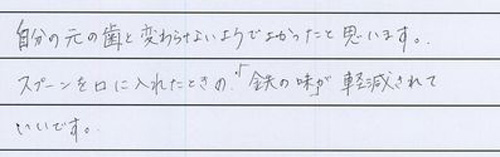 自分の元の歯と変わらないようでよかったと思います。
スプーンを口に入れたときの、「鉄の味」が軽減されて
いいです。